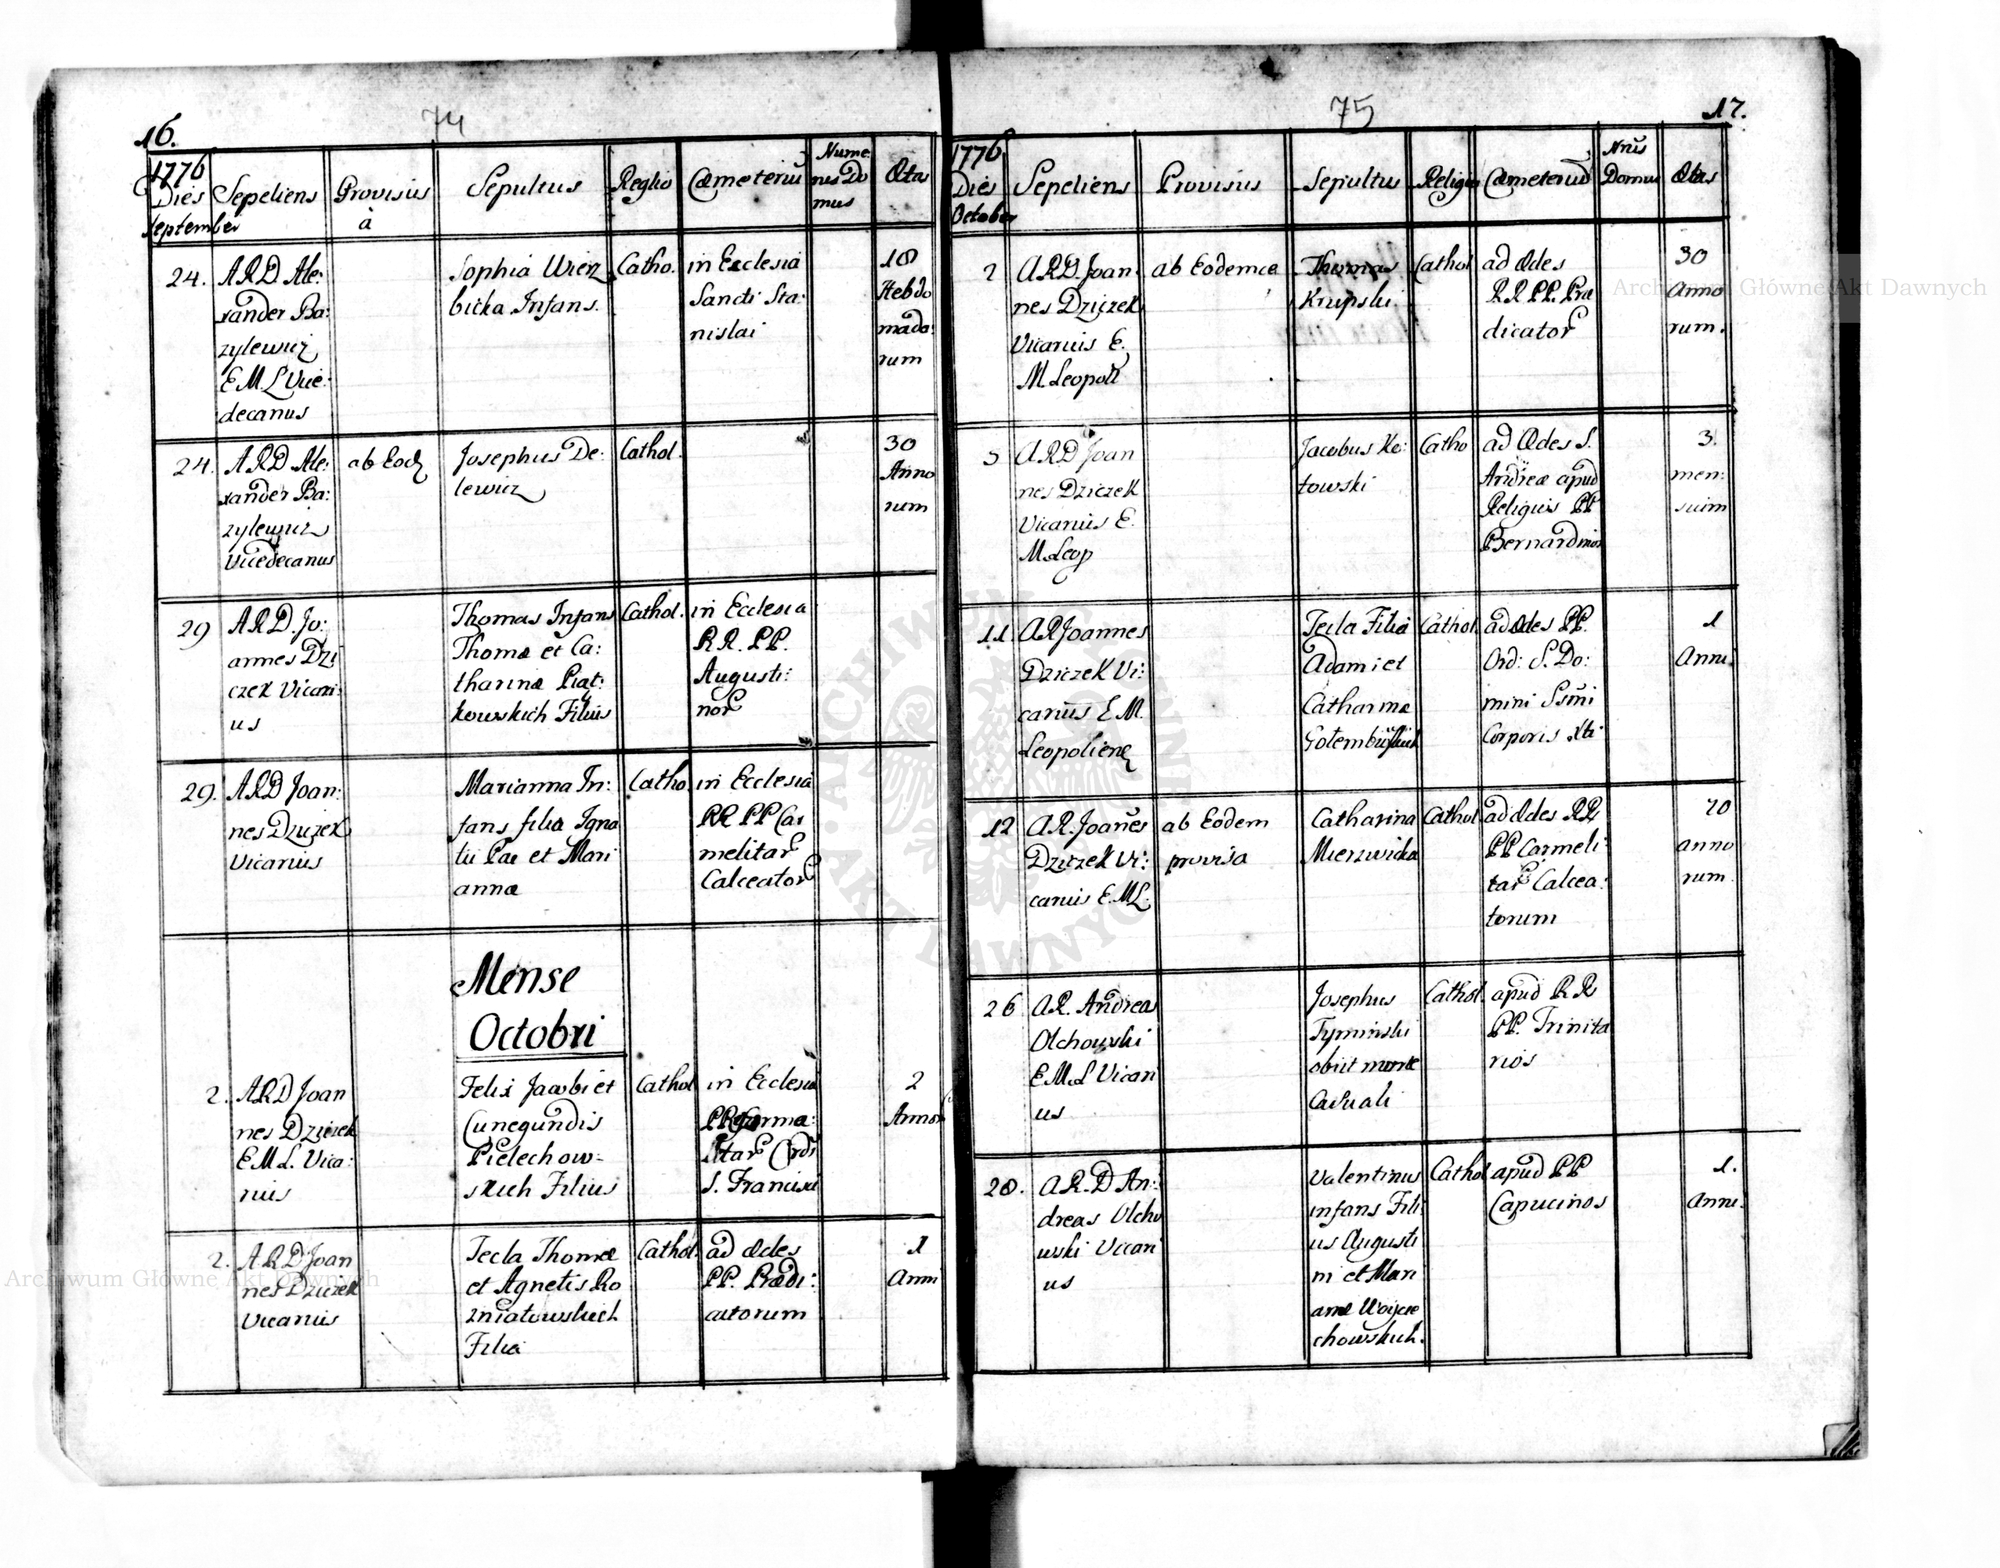 16.
74
1776
Dies
September
Sepeliens
Provisus
à
Sepultus
Reglio
Cæmeteriu
Nume
rus Do
mus
Ætas
24.
A R D Ale:
xander Ba:
zylewicz
E M L Vice:
decanus
Sophia Wierz
bicka Infans.
Catho.
in Ecclesia
Sancti Sta:
nislai
18
Hebdo
mada:
rum
24.
A R D Ale:
xander Ba:
zylewicz
Vicedecanus
ab Eod
Josephus De:
lewicz
Cathol.
30
Anno
rum
29
A R D. Jo:
annes Dzi
czek Vicari:
us
Thomas Infans
Thomæ et Ca:
tharinæ Piąt:
kowskich Filius
Cathol.
in Ecclesia
R R. P P.
Augusti:
nor
29.
A R D Joan:
nes Dziczek
Vicarius
Marianna In:
fans filia Igna
tii Pac et Mari
annæ
Catho.
in Ecclesia
RR PP Car
melitar
Calceator
Mense
Octobri
2.
A R D Joan
nes Dziczek
E M L. Vica:
rius
Felix Jacobi et
Cunegundis
Pielechow-
skich Filius
Cathol
in Ecclesia
S. Francisci
2
Annor
2.
A R D Joan
nes Dziczek
Vicarius
Tecla Thomæ
et Agnetis Ro
zniatowskich
Filia
Cathol.
ad ædes
PP. Prædi:
catorum
1
Anni
75
17.
1776
Dies
October
Sepeliens
Provisus
Sepultus
Religio
Cæmeteriu
Nrus
Domus
Ætas
2
A R D. Joan:
nes Dziczek
Vicarius E.
M Leopoli
ab Eodem
Thomas
Krupski
Cathol
ad ædes
R R PP. Præ
dicator
30
Anno
rum.
5
A R D Joan
nes Dziczek
Vicarius E.
M Leop
Jacobus Ko:
towski
Catho
ad Ædes S.
Andreæ apud
Religios PP
Bernardinos
3.
men:
sium
11
A R Joannes
Dziczek Vi:
carius E M.
Leopolien
Tecla Filia
Adami et
Catharinæ
Cathol
ad Ædes PP.
Ord: S. Do:
mini Ssmi
Corporis Xti
1
Anni.
12
A R. Joanes
Dziczek Vi:
carius E. ML.
ab Eodem
provisa
Catharina
Mierzwicka
Cathol
ad Ædes RR
PP Carmeli
tar Calcea:
torum
70
anno
rum.
26
A R. Andreas
Olchowski
E M L Vicari
us
Josephus
Tyminski
obiit morte
casuali
Cathol.
apud R R
PP. Trinita
rios
28.
A R. D An:
dreas Olcho
wski Vicari
us
Valentinus
infans Fili
us Augusti
ni et Mari
annæ Woycie
chowskich.
Cathol
apud PP
Capucinos
1.
Anni.
Archiwum Główne Akt Dawnych
Archiwum Główne Akt Dawnych
ARCHIWUM GŁÓWNE
AKT DAWNYCH